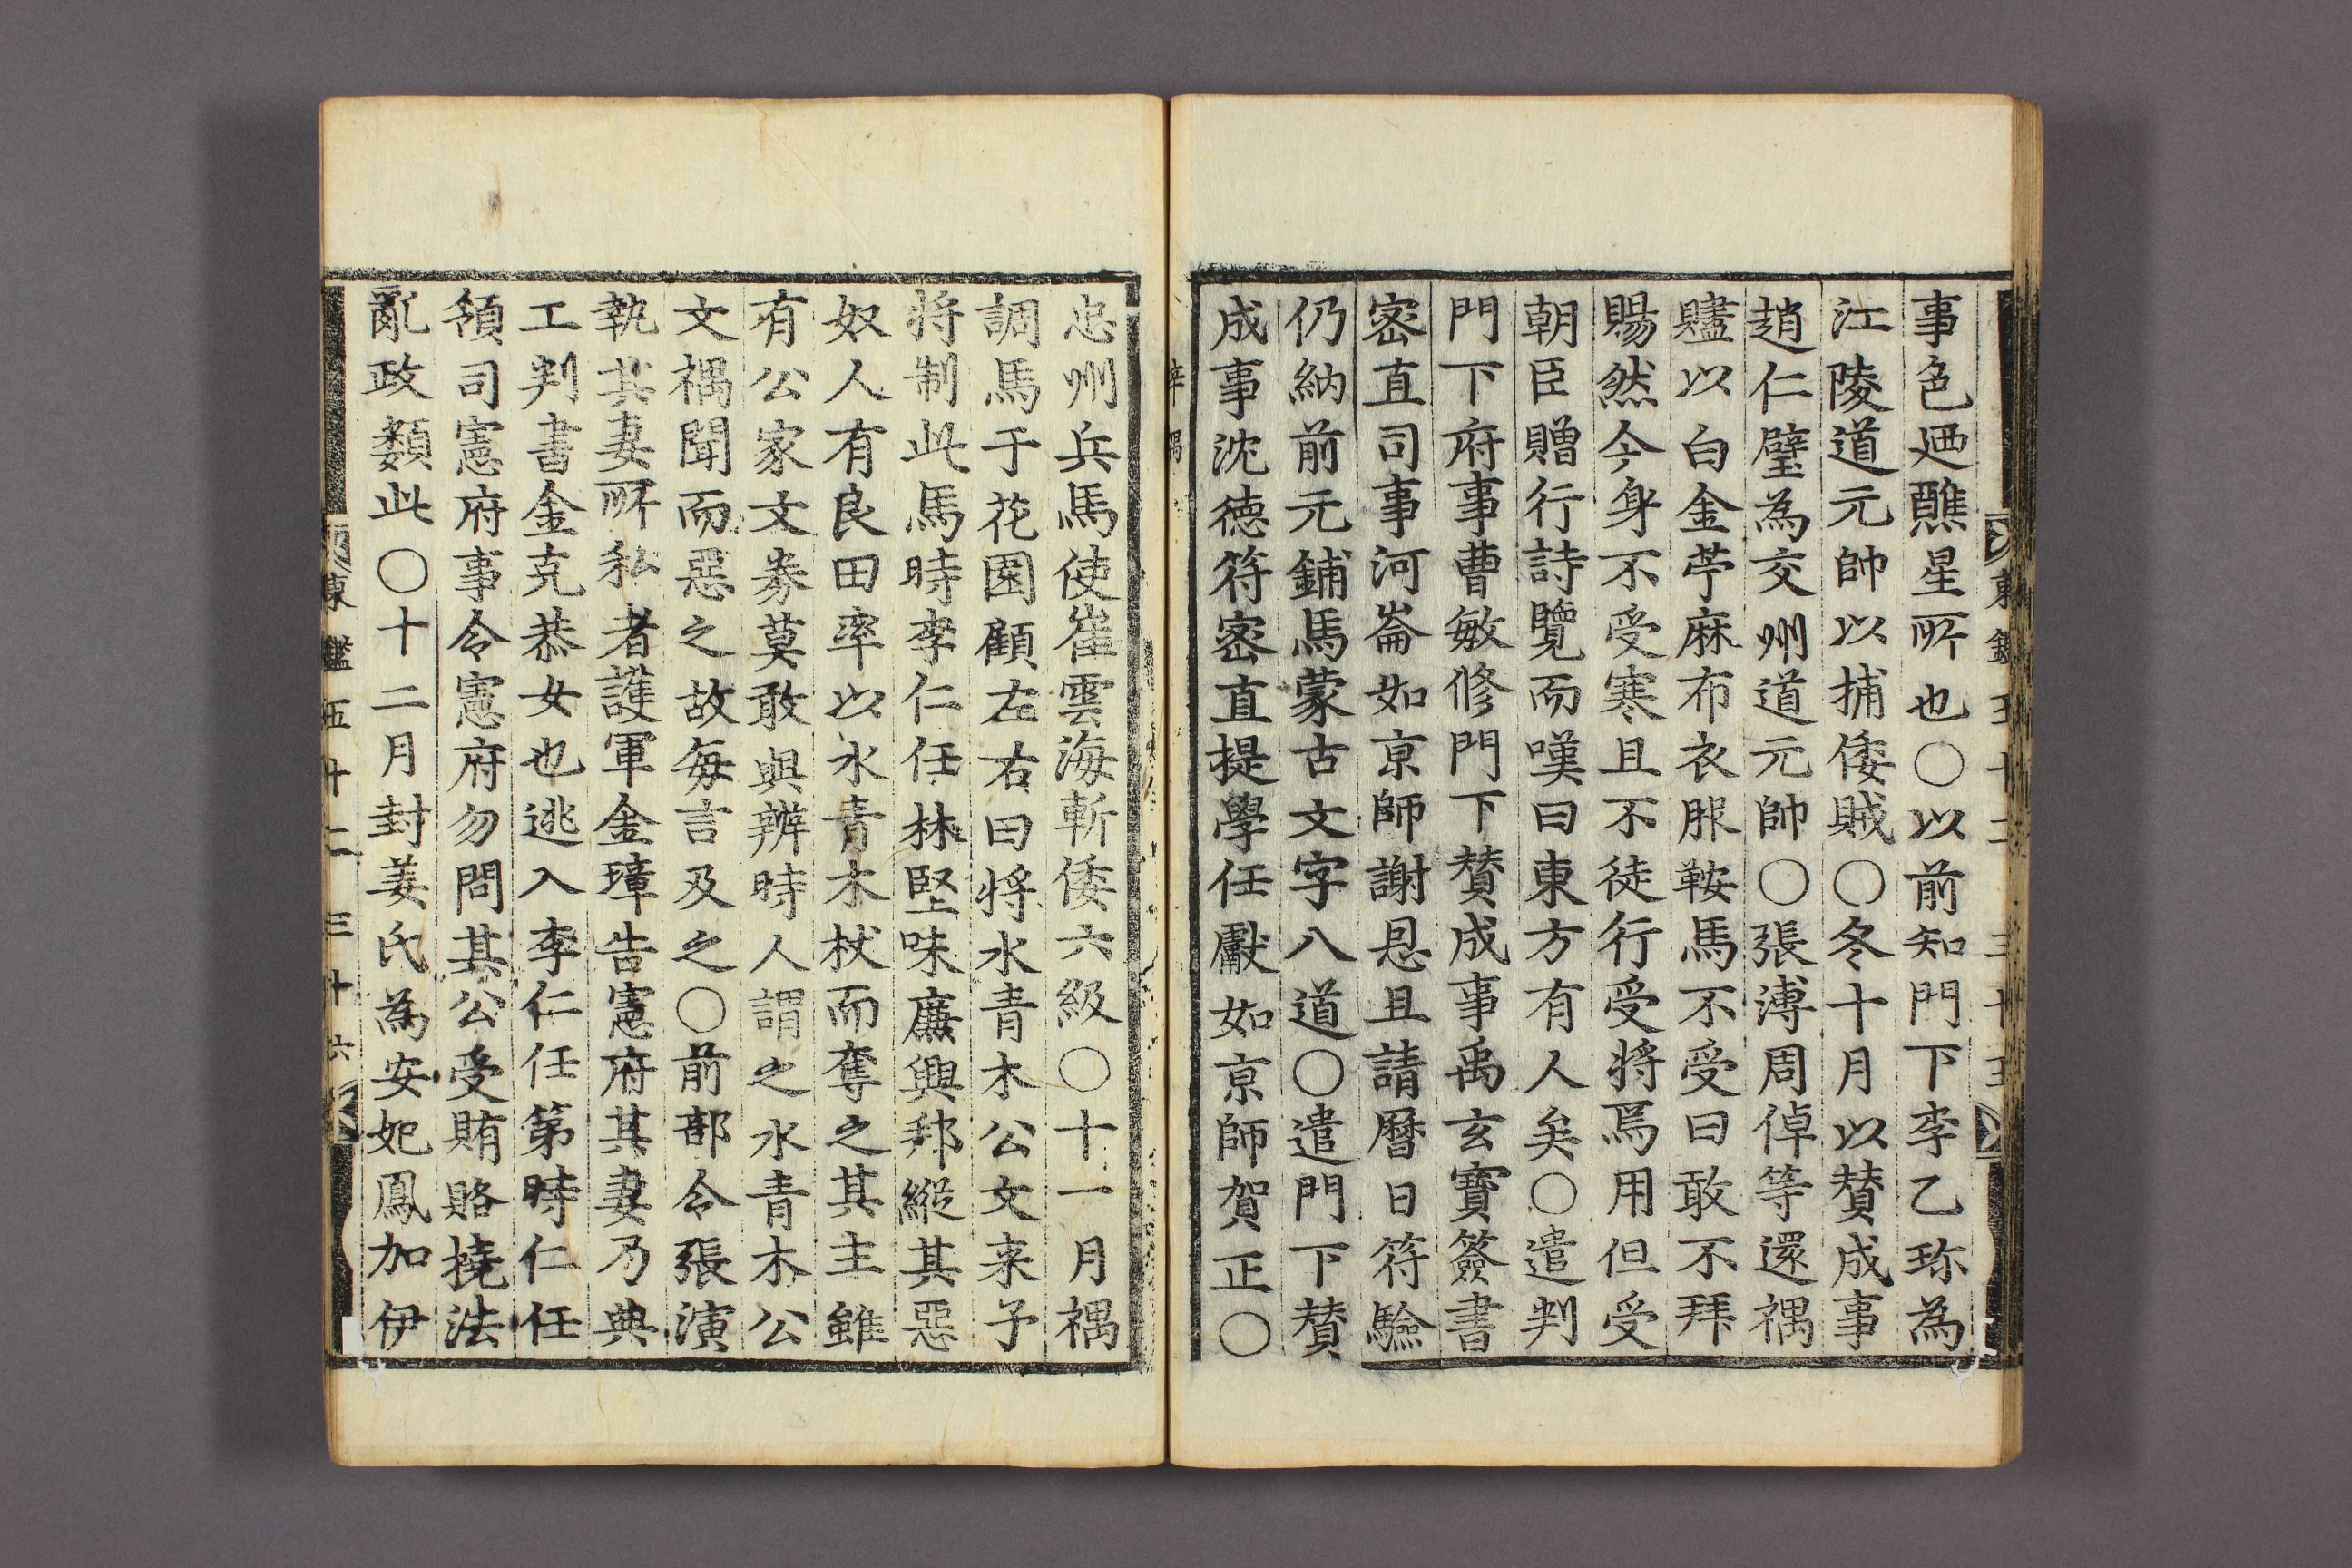 事色廼醮星所也○以前知門下李乙珎為
江陵道元帥以捕倭賊○冬十月以賛成事
趙仁璧為交州道元帥○張溥周倬等還禑
贐以白金苧麻布衣服鞍馬不受曰敢不拜
賜然今身不受寒且不徒行受將焉用但受
朝臣贈行詩覽而嘆曰東方有人矣○遣判
門下府事曹敏修門下賛成事禹玄寶簽書
密直司事河崙如亰師謝恩且請曆日符驗
仍納前元鋪馬蒙古文字八道○遣門下賛
成事沈德符密直提學任獻如亰師賀正○
忠州兵馬使崔雲海斬倭六級○十一月禑
調馬于花園顧左右曰將水青木公文来予
將制此馬時李仁任林堅味廉興邦縱其惡
奴人有良田率以水青木杖而奪之其主雖
有公家文券莫敢與辨時人謂之水青木公
文禑聞而惡之故每言及之○前部令張演
執其妻所私者護軍金璋告憲府其妻乃典
工判書金克恭女也逃入李仁任第時仁任
領司憲府事令憲府勿問其公受賄賂撓法
亂政類此○十二月封姜氏為安妃鳳加伊
東鑑五十二 三十五
辛禑
東鑑五十二 三十六